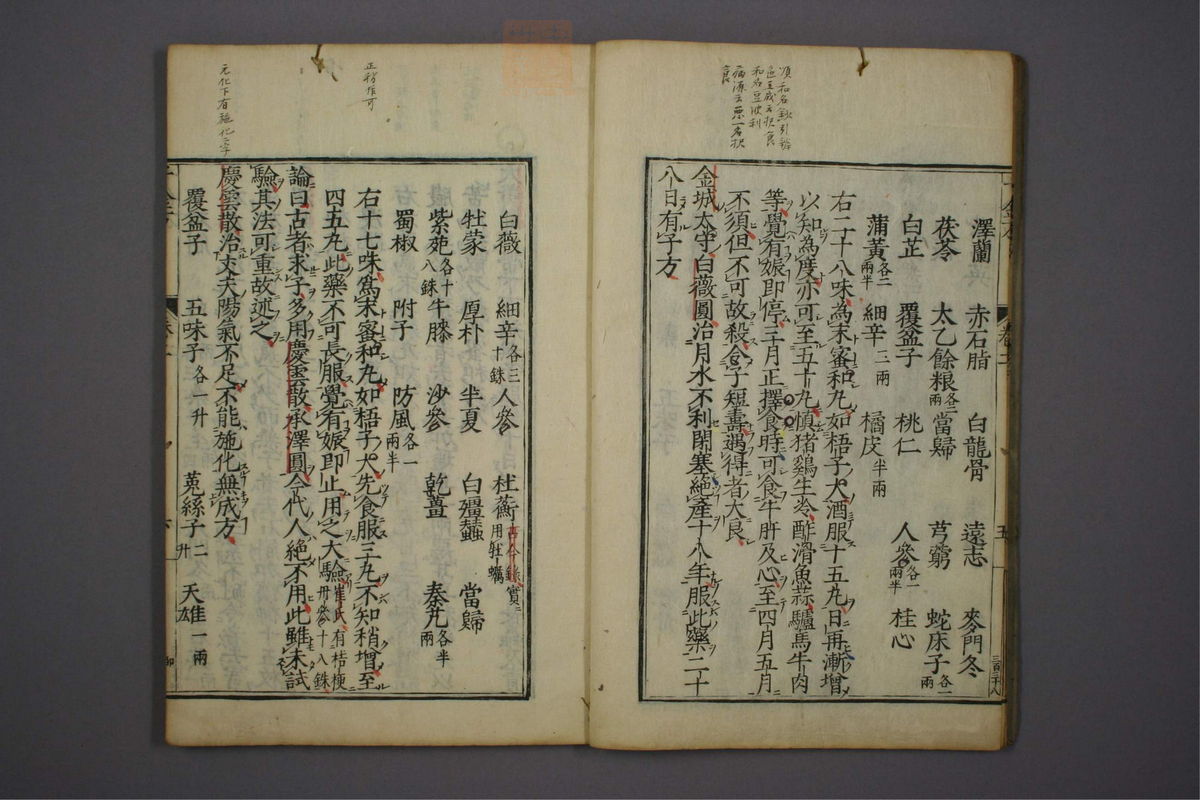 澤蘭 赤石脂 白龍骨 遠志 麥門冬
茯苓 太乙餘粮各二兩 當歸 芎藭 蛇床子各一兩
白芷 覆盆子 桃仁 人參各一兩半 桂心
蒲黃各三兩半 細辛二兩 橘皮半兩
右二十八味為末蜜和丸如梧子大酒服十五丸日再漸增
以知為度亦可至五十丸慎猪鷄生冷酢滑魚蒜驢馬牛肉
等覺有娠即停三月正擇食時可食牛肝及心至四月五月
不須但不可故殺令子短壽遇得者大良
金城太守白薇圓治月水不利閉塞絕產十八年服此藥二十
八日有子方
白薇 細辛各三十銖 人參 杜蘅古今錄實用牡蠣
牡蒙 厚朴 半夏 白殭蠶 當歸
紫菀各十八銖 牛膝 沙參 乾薑 秦艽各半兩
蜀椒 附子 防風各一兩半
右十七味為末蜜和丸如梧子大先食服三丸不知稍增至
四五丸此藥不可長服覺有娠即止用之大驗崔氏有桔梗丹參十八銖
論曰古者求子多用慶雲散承澤圓今代人絕不用此雖未試
驗其法可重故述之
慶雲散治丈夫陽氣不足不能施化無成方
覆盆子 五味子各一升 菟絲子二升 天雄一兩
正稍作可
元化下有施化二字